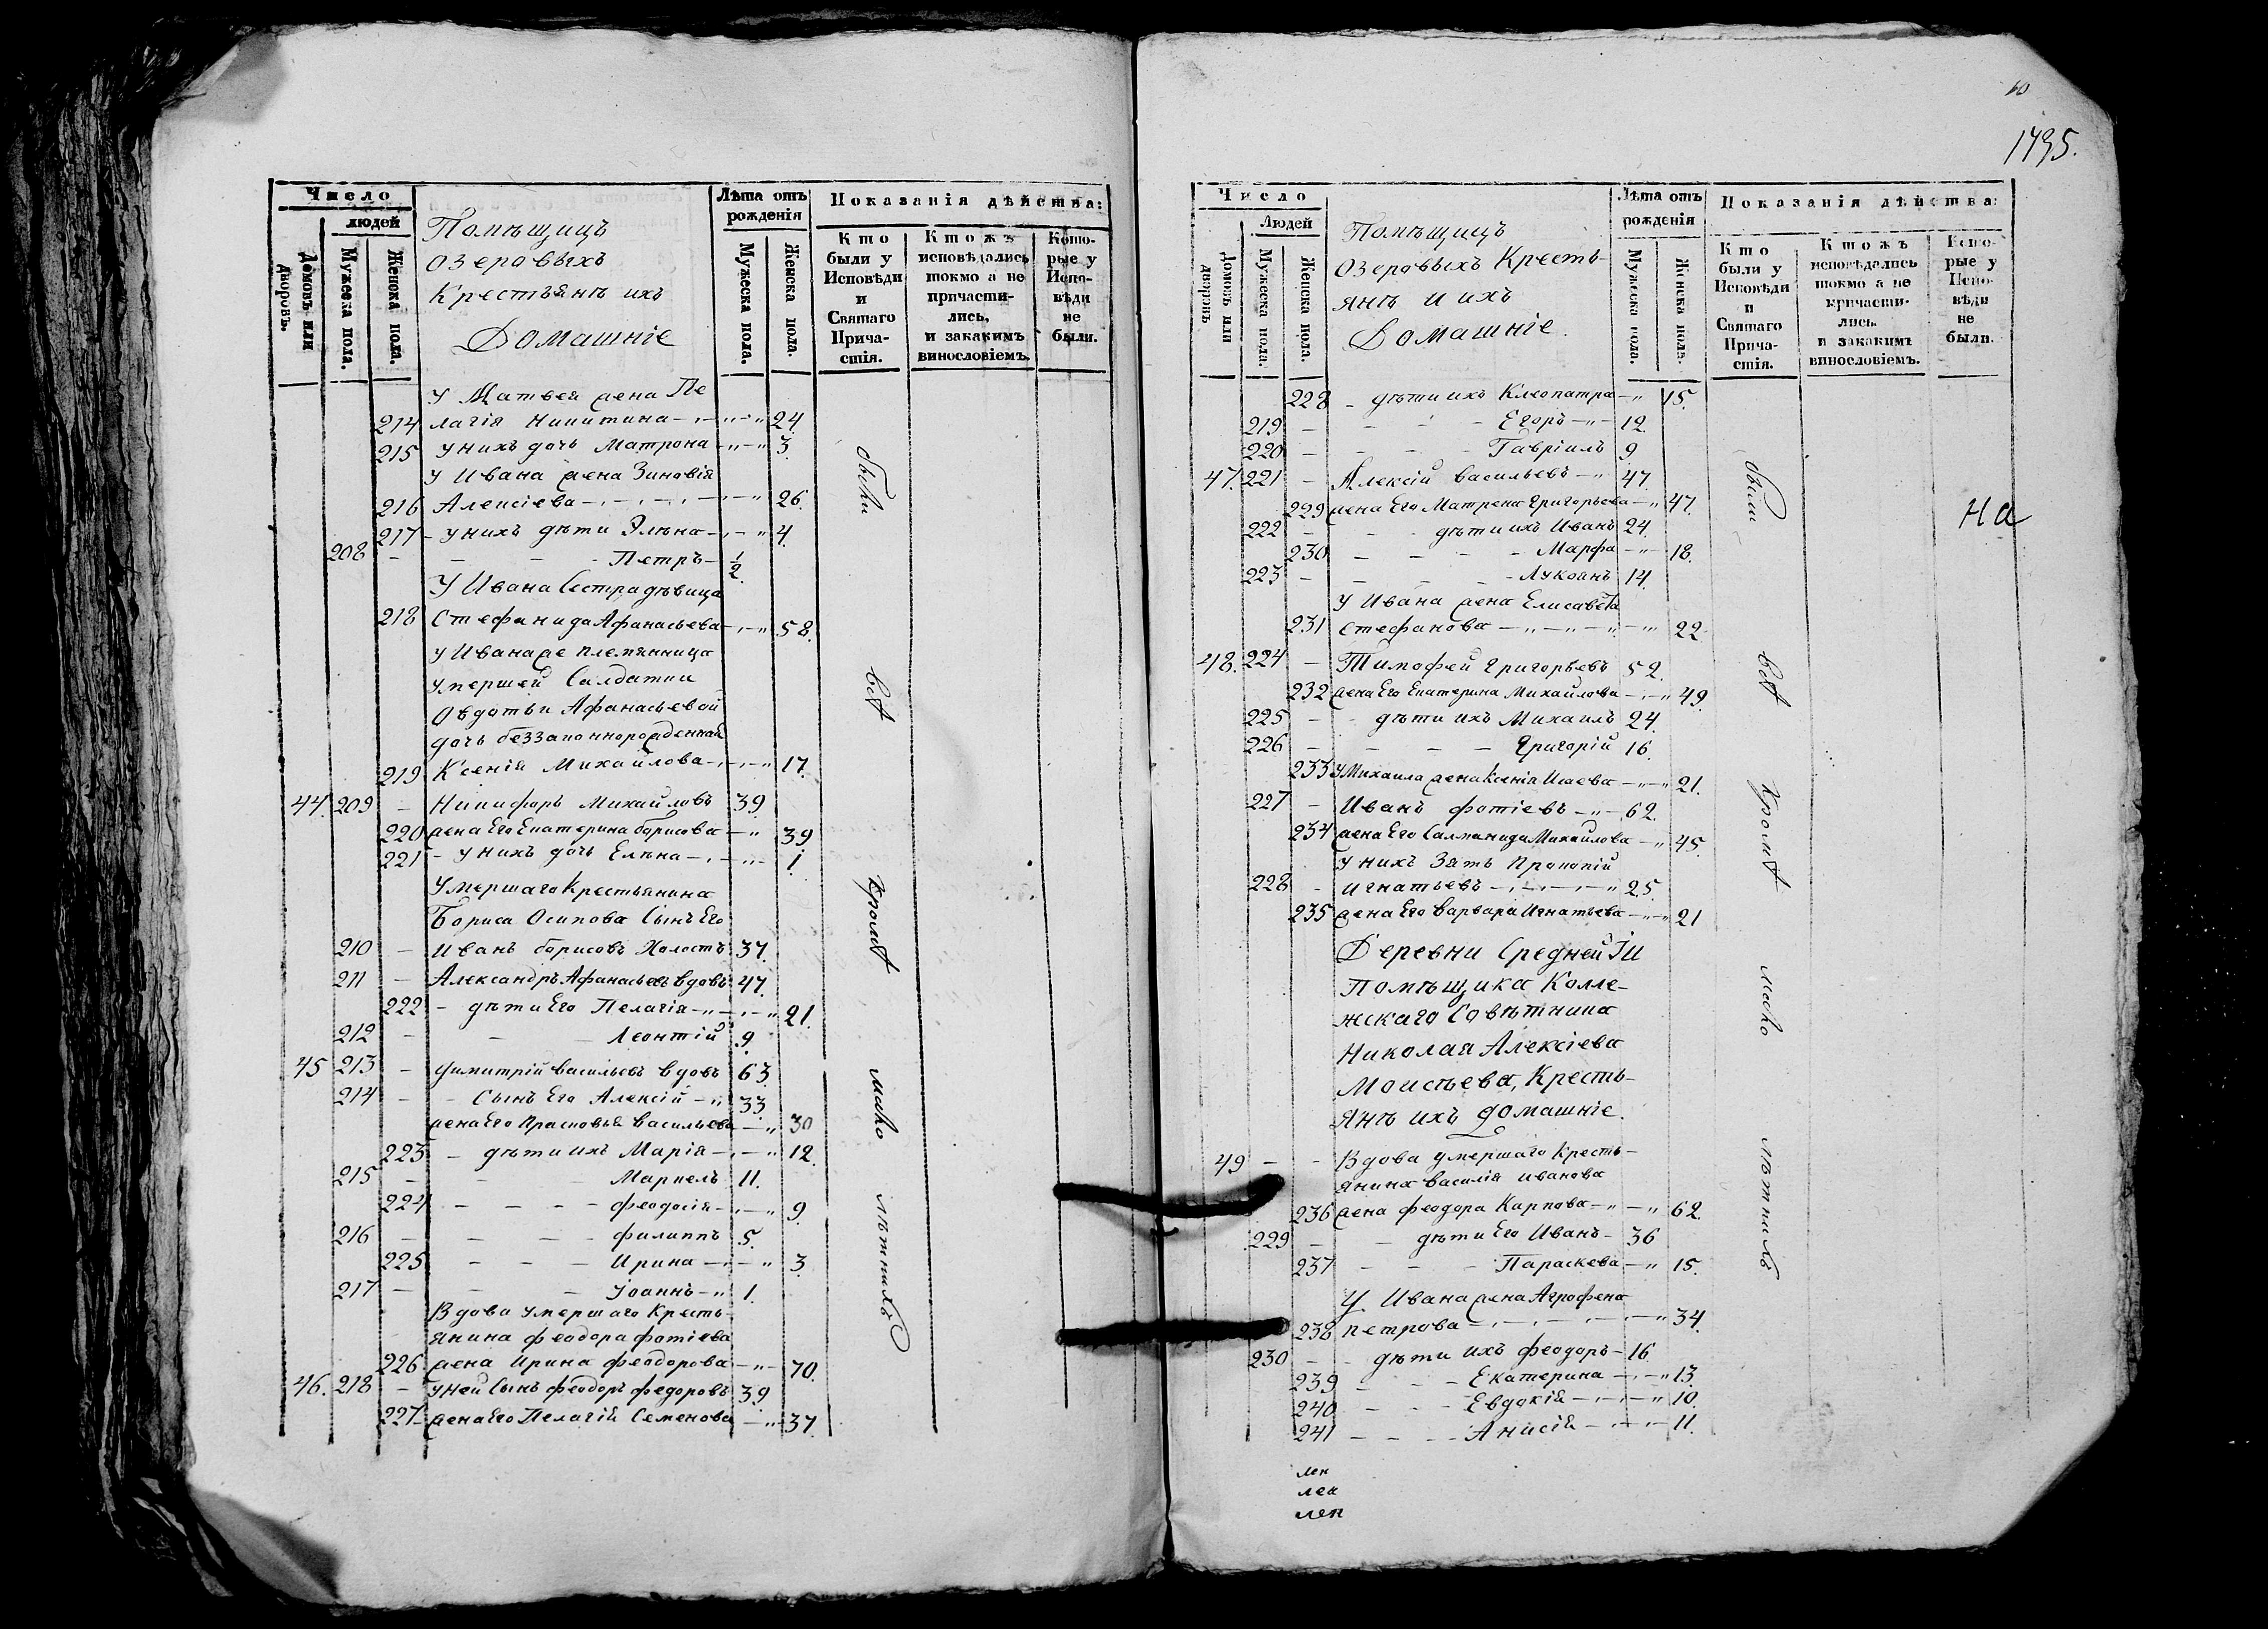 Число
людей
Домовъ или дворовъ.
Мужеска пола.
Женска пола.
Помѣщицъ
Озеровыхъ
Крестьянъ ихъ
Домашніе
Лѣта отъ рожденія
Мужеска пола.
Женска пола.
Показанія дѣйства:
Кто были у Исповѣди и Святаго Прича-стія.
Ктожъ исповѣдались токмо а не причасти-лись, и закакимъ винословіемъ.
Кото-рые у Испо-вѣди не были.
У Матвея жена Пе
214 лагія Никитина 24.
215 у нихъ дочь Матрона 3.
У Ивана жена Зиновія
216 Алексіева 26.
217 - у нихъ дѣти Элѣна 4.
208 - Петръ 1/2.
У Ивана Сестра дѣвица
218 Стефанида Афанасьева 58.
У Ивана же племянница
умершей Салдатки
Овдотьи Афанасьевой
дочь беззаконнорожденная
219 Ксенія Михайлова 17.
44. 209 - Никифоръ Михайловъ 39.
220 жена Его Екатерина борисова 39
221 - у нихъ дочь Елѣна 1.
Умершаго Крестьянина
Бориса Осипова Сынъ Его
210 - Иванъ борисовъ Холостъ 37.
211 - Александръ Афанасьевъ вдовъ 47.
222 - дѣти Его Пелагія 21.
212 - Леонтій 9.
45 213 - Димитрій васильевъ вдовъ 63.
214 - Сынъ Его Алексій 33.
жена Его Прасковья васильева 30
223 - дѣти ихъ Марія 12.
215 - Маркелъ 11.
224 - феодосія 9.
216 - филиппъ 5.
225 - Ирина 3.
217 - Іоаннъ 1.
Вдова умершаго Кресть-
янина феодора фотіева
226 жена Ирина феодорова 70.
46. 218 - у ней Сынъ феодоръ федоровъ 39
227 жена Его Пелагія Семенова 37.
были
всѣ
кромѣ
мало
лѣтнихъ
10
1795.
Число
Людей
Домовъ или дворовъ
Мужеска пола.
Женска пола.
Помѣщицъ
Озеровыхъ Кресть-
янъ и ихъ
Домашніе.
Лѣта отъ рожденія
Мужеска пола.
Женска пола.
Показанія дѣйства:
Кто были у Исповѣди и Святаго Прича-стія.
Ктожъ исповѣдались токмо а не причасти-лись. и закакимъ винословіемъ.
Кото-рые у Испо-вѣди не были.
228 - дѣти ихъ Клеопатра 15.
219 - Егоръ 12.
220 - Гавріилъ 9
47. 221 - Алексій васильевъ 47.
229 жена Его Матрена Григорьева 47.
222 - дѣти ихъ Иванъ 24.
230 - Марфа 18.
223 - Лукоанъ 14.
У Ивана жена Елисавета
231 Стефанова 22
48. 224 - Тимофей Григорьевъ 52.
232 жена Его Екатерина Михайлова 49
225 - дѣти ихъ Михаилъ 24.
226 - Григорій 16.
233 У Михаила жена Ксенія Исаева 21.
227 - Иванъ фотіевъ 62.
234 жена Его Салманида Михайлова 45.
У нихъ Зять Прокопій
228 - Игнатьевъ 25.
235 жена Его варвара Игнатьева 21
Деревни Средней Ій
Помѣщика Колле-
жскаго Совѣтника
Николая Алексіева
Моисѣева, Кресть-
янъ ихъ домашніе.
49 - - Вдова умершаго Кресть-
янина василія иванова
236 жена феодора Карпова 62.
229 - дѣти Его Иванъ 36
237 - Параскева 15.
У Ивана жена Агрофена
238 петрова 34.
230 - дѣти ихъ феодоръ 16
239 - Екатерина 13.
240 - Евдокія 10.
241 - Анисія 11.
были
всѣ
кромѣ
мало
лѣтнихъ
На